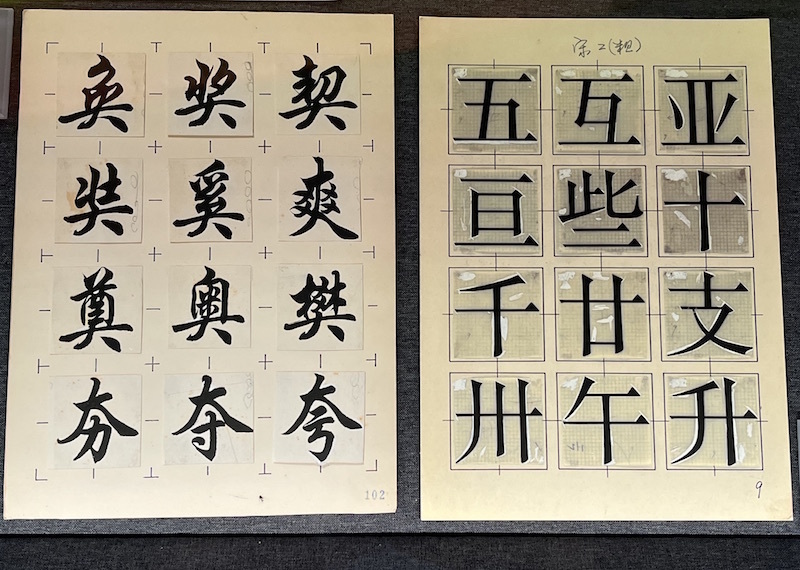 奂奖契
奘奚爽
奠奥樊
夯夺夸
102
宋二(粗)
五互亚
亘些十
千廿支
卅午升
9